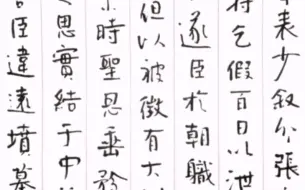 表少叙个張
乞假百日以泄
遂臣於朝職
但以被徵有大
時聖恩垂矜
思實結于中
臣違遠墳墓